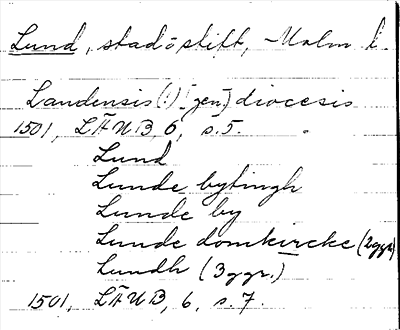 Lund, stad o stift, -Malm l.
Landensis (!) [gen] diocesis
1501, LÄUB, 6, s. 5.
Lund
Lunde bytingh
Lunde by
Lunde domkircke (2ggr)
Lundh (3ggr.)
1501, LÄUB, 6, s. 7.